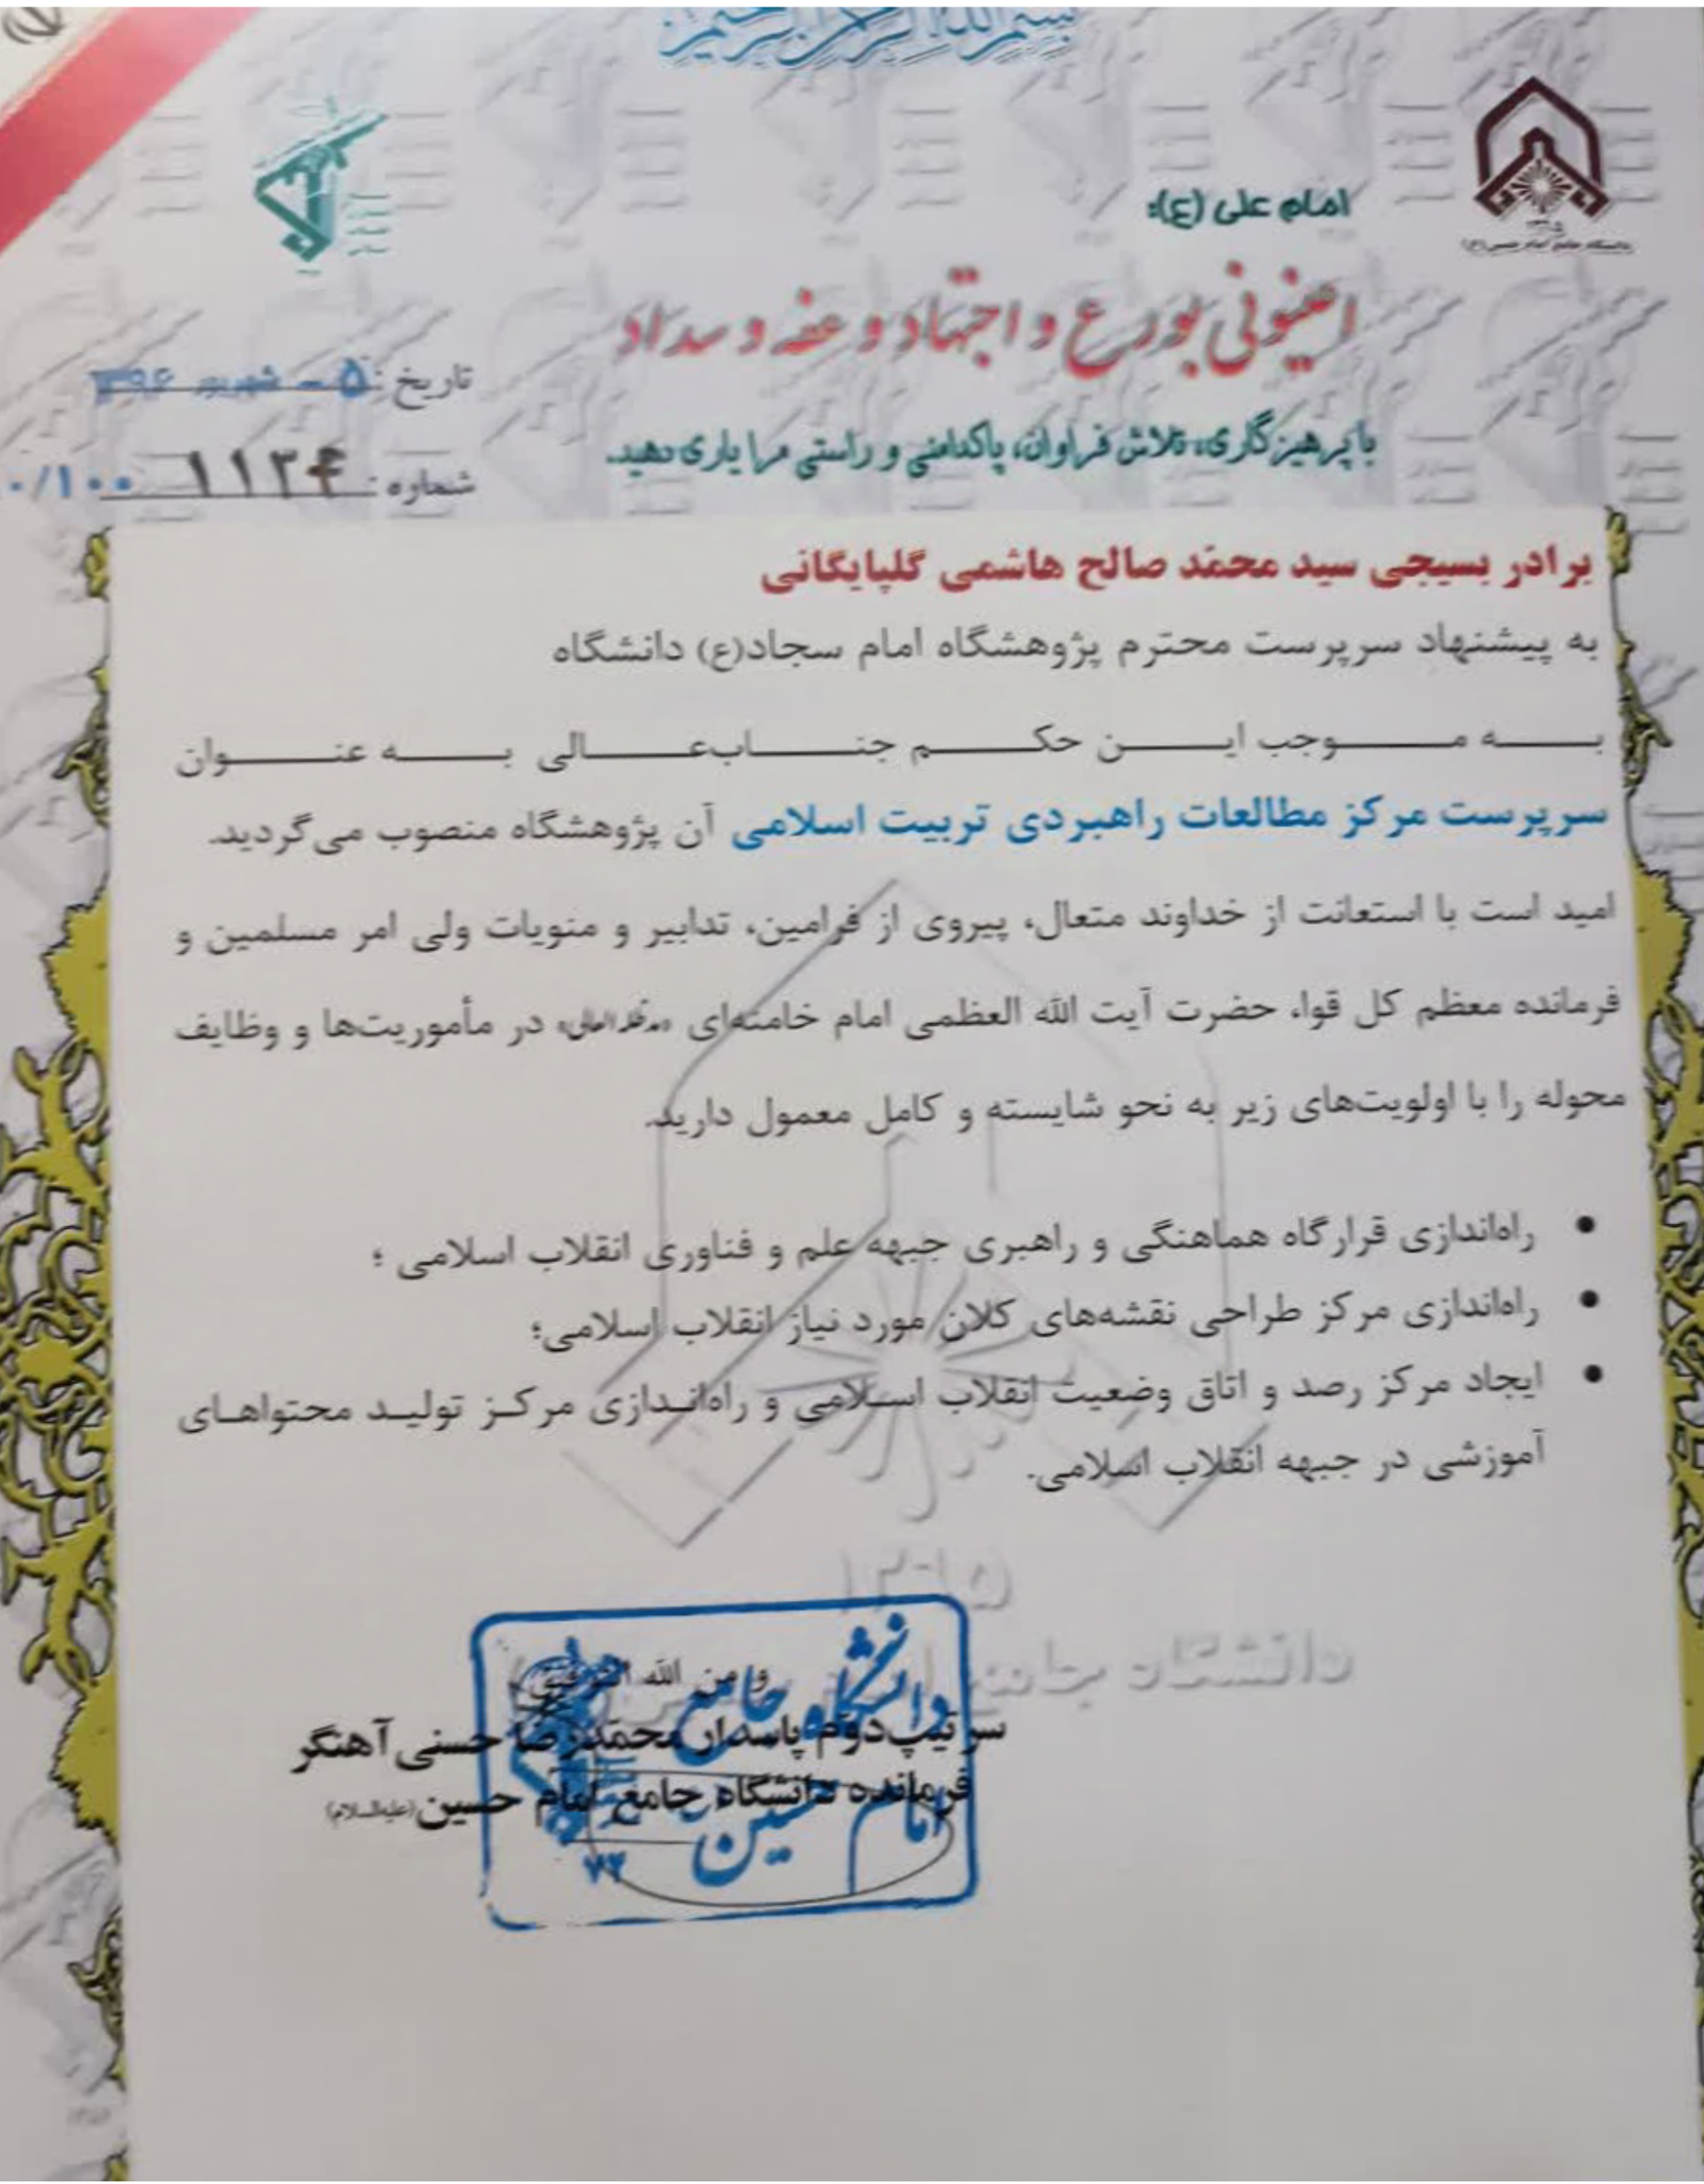 بسم الله الرحمن الرحیم
امام علی (ع):
اعینونی بورع و اجتهاد و عفه و سداد
با پرهیزگاری، تلاش فراوان، پاکدامنی و راستی مرا یاری دهید.
تاریخ: ۵ - شهریور ۱۳۹۶
شماره: ۱۱۳۴ ۰/۱۰۰
۱۳۶۵
دانشگاه جامع امام حسین (ع)
برادر بسیجی سید محمّد صالح هاشمی گلپایگانی
به پیشنهاد سرپرست محترم پژوهشگاه امام سجاد(ع) دانشگاه
بـــه مـــوجب ایـــن حکـــم جنـــاب‌عـــالی بـــه عنـــوان
سرپرست مرکز مطالعات راهبردی تربیت اسلامی آن پژوهشگاه منصوب می‌گردید.
امید است با استعانت از خداوند متعال، پیروی از فرامین، تدابیر و منویات ولی امر مسلمین و
فرمانده معظم کل قوا، حضرت آیت الله العظمی امام خامنه‌ای «مدظله العالی» در مأموریت‌ها و وظایف
محوله را با اولویت‌های زیر به نحو شایسته و کامل معمول دارید.
• راه‌اندازی قرارگاه هماهنگی و راهبری جبهه علم و فناوری انقلاب اسلامی ؛
• راه‌اندازی مرکز طراحی نقشه‌های کلان مورد نیاز انقلاب اسلامی؛
• ایجاد مرکز رصد و اتاق وضعیت انقلاب اسـلامی و راه‌انـدازی مرکـز تولیـد محتواهـای
آموزشی در جبهه انقلاب اسلامی.
۱۳۶۵
دانشگاه جامع
و من الله التوفیق
سرتیپ دوم پاسدار محمّدرضا حسنی آهنگر
فرمانده دانشگاه جامع امام حسین (علیه‌السلام)
دانشگاه جامع
امام حسین
۷۲